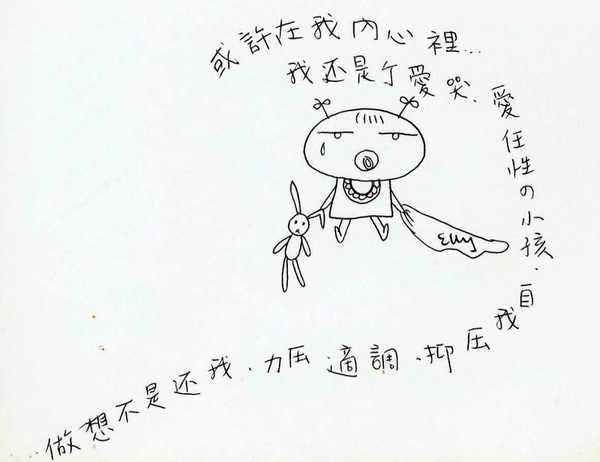 或許在我內心裡...
我还是个愛哭、愛任性の小孩.自我压抑、調適压力.我还是不想做...
Elly